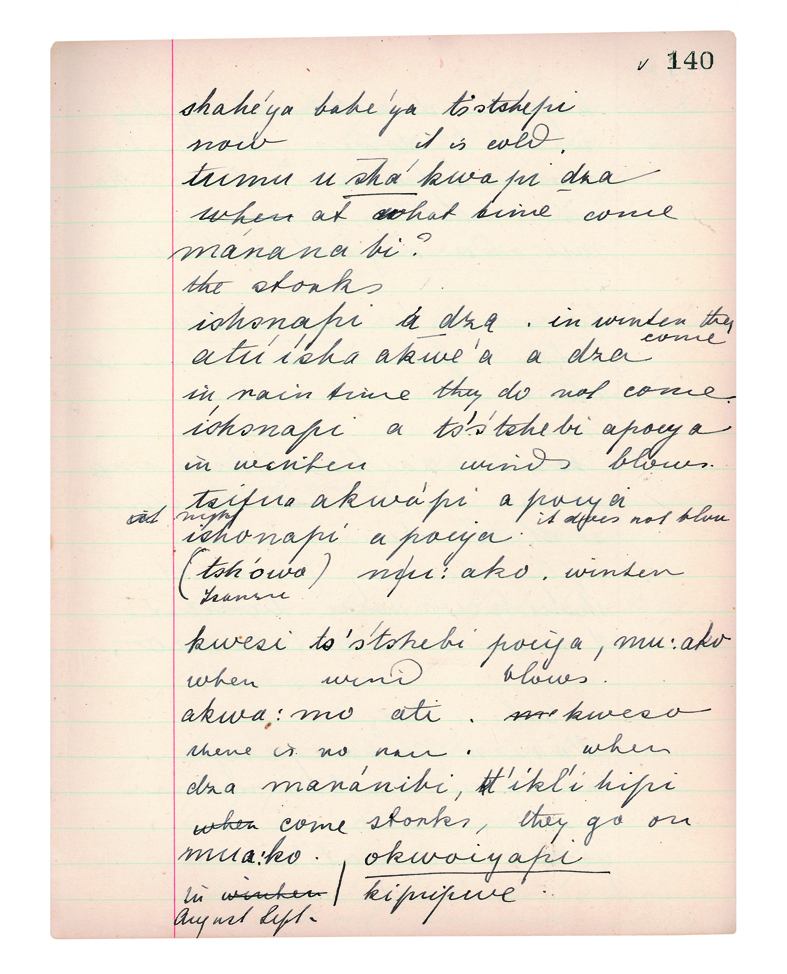 ✓ 140
shahé'ya babe'ya tsśtshepi
now it is cold.
tumu u shá kwapi dza
when at what time come
mánana bi?
the storks
ishsnapi á dza. in winter they
come
atú ísha akwé'a a dza
in rain time they do not come.
íshsnapi a ts'śtshebi apouya
in winter winds blows.
tsifua akwápi a pouyá
night it does not blow
íshonapí a pouya.
(tskówo) mu: ako. winter
kwesi ts'śtshebi pouya, mu: ako
when wind blows.
akwa: mo ati. kweso
there is no rain. when
dza manánibi, tt'íkl'i hipi
when come storks, they go on
mua:ko. okwoiyapi
in winter / kipipwe
August Sept.